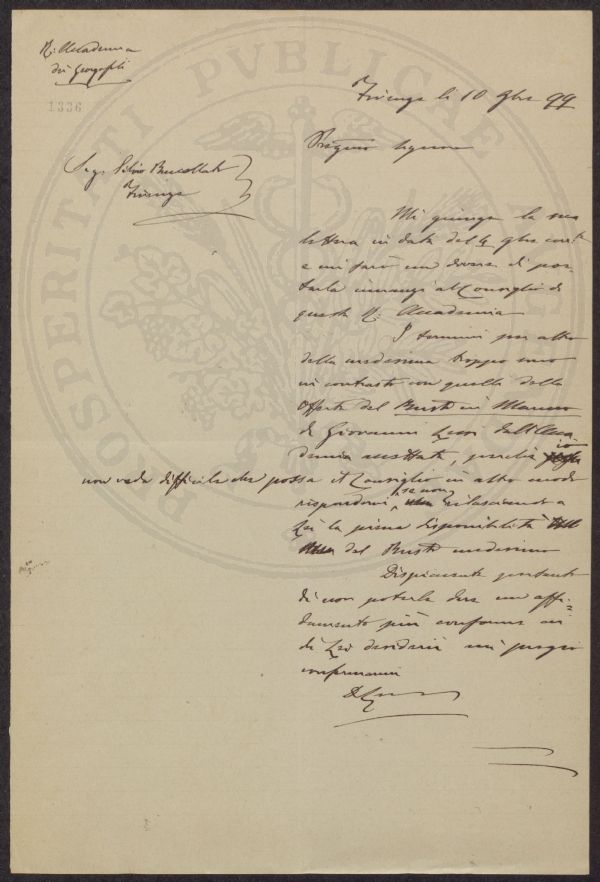 R. Accademia
dei Georgofili
1336
Firenze li 10 9bre 99
Pregmo Signore
Sig. Silvio Bucellato
Firenze
Mi giunge la sua
lettera in data del 4 9bre corrte
e mi farò un dovere di por-
tarla innanzi al Consiglio di
questa R. Accademia
I termini per altro
della medesima troppo sono
in contrasto con quella della
Offerta del Busto in Marmo
di Giovanni dall'Acca
demia accettata, perchè io
non veda difficile che possa il Consiglio in altro modo
risponderle se non rilasciando a
Lei la piena disponibilità
del Busto medesimo
Dispiacente pertanto
di non poterle dare un affi-
damento più conforme ai
di Lei desiderii mi pregio
confermarmi
PROSPERITATI PVBLICAE